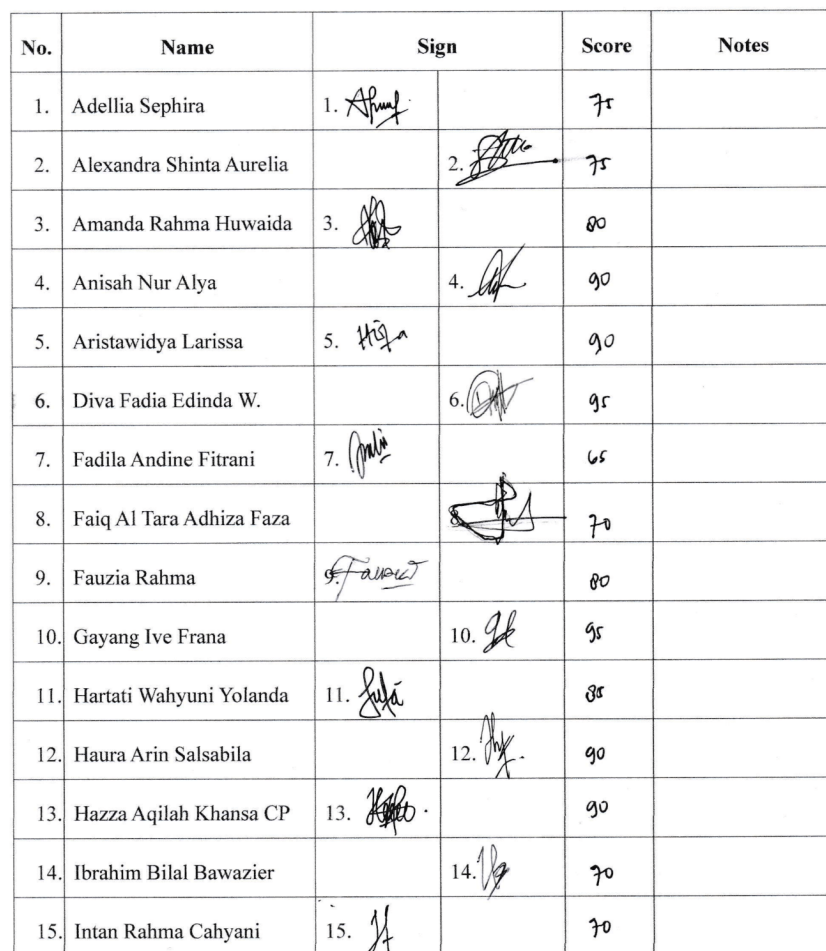 No. Name Sign Score Notes
1. Adellia Sephira 1. 75
2. Alexandra Shinta Aurelia 2. 75
3. Amanda Rahma Huwaida 3. 80
4. Anisah Nur Alya 4. 90
5. Aristawidya Larissa 5. 90
6. Diva Fadia Edinda W. 6. 95
7. Fadila Andine Fitrani 7. 65
8. Faiq Al Tara Adhiza Faza 8. 70
9. Fauzia Rahma 9. 80
10. Gayang Ive Frana 10. 95
11. Hartati Wahyuni Yolanda 11. 85
12. Haura Arin Salsabila 12. 90
13. Hazza Aqilah Khansa CP 13. 90
14. Ibrahim Bilal Bawazier 14. 70
15. Intan Rahma Cahyani 15. 70